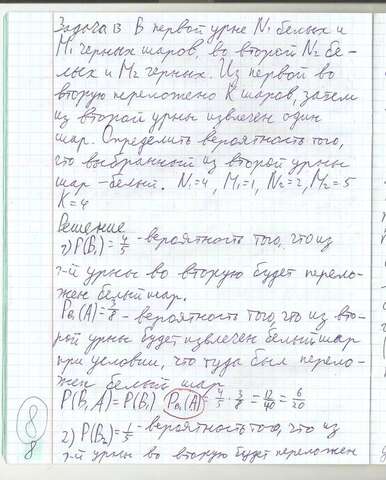 Задача 13 В первой урне N₁ белых и
M₁ черных шаров, во второй N₂ бе-
лых и M₂ черных. Из первой во
вторую переложено K шаров, затем
из второй урны извлечен один
шар. Определить вероятность того,
что выбранный из второй урны
шар - белый. N₁=4, M₁=1, N₂=2, M₂=5
K=4
Решение
1) P(B₁)=4/5 - вероятность того, что из
1-й урны во вторую будет перело-
жен белый шар.
P_B₁(A)=3/8 - вероятность того, что из вто-
рой урны будет извлечен белый шар
при условии, что туда был перело-
жен белый шар
P(B₁A)=P(B₁) P_B₁(A)=4/5·3/8=12/40=6/20
2) P(B₂)=1/5 - вероятность того, что из
1-й урны во вторую будет переложен
8
8